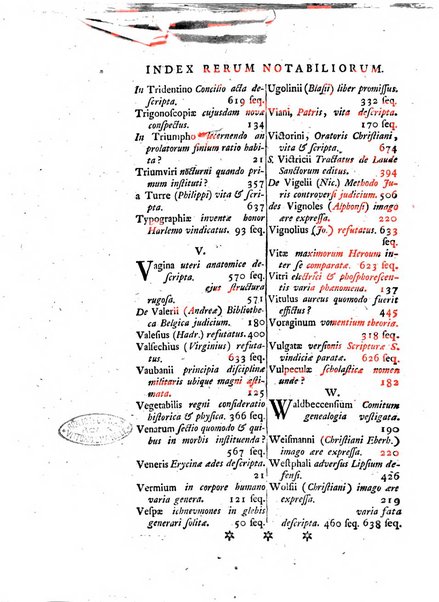 INDEX RERUM NOTABILIORUM.
In Tridentino Concilio acta de-
scripta. 619 seq.
Trigonoscopiæ cujusdam novæ
conspectus. 134
In Triumpho decernendo an
prolatorum finium ratio habi-
ta? 21
Triumviri nocturni quando pri-
mum instituti? 357
a Turre (Philippi) vita & scri-
pta. 637
Typographiæ inventæ honor
Harlemo vindicatus. 93 seq.
V.
Vagina uteri anatomice de-
scripta. 570 seq.
ejus structura
rugosa. 571
De Valerii (Andreæ) Bibliothe-
ca Belgica judicium. 180
Valesius (Hadr.) refutatus. 400
Valsechius (Virginius) refuta-
tus. 633 seq.
Vaubanii principia disciplinæ
militaris ubique magni æsti-
mata. 125
Vegetabilis regni consideratio
historica & physica. 366 seq.
Venarum sectio quomodo & qui-
bus in morbis instituenda?
67 seq.
Veneris Erycinæ ædes descripta.
21
Vermium in corpore humano
varia genera. 121 seq.
Vespæ ichneumones in glebis
generari solitæ. 50 seq.
Ugolinii (Blasii) liber promissus.
332 seq.
Viani, Patris, vita descripta.
170 seq.
Victorini, Oratoris Christiani,
vita & scripta. 674
S. Victricii Tractatus de Laude
Sanctorum editus. 394
De Vigelii (Nic.) Methodo Ju-
ris controversi judicium. 506
des Vignoles (Alphonsi) imago
ære expressa. 220
Vignolius (Jo.) refutatus. 633
seq.
Vitæ maximorum Heroum in-
ter se comparatæ. 623 seq.
Vitri electrici & phosphorescen-
tis varia phænomena. 137
Vitulus aureus quomodo fuerit
effictus? 445
Voraginum vomentium theoria.
318 seq.
Vulgatæ versionis Scripturæ S.
vindiciæ paratæ. 626 seq.
Vulpeculæ scholasticæ nomen
unde? 182
W.
Waldbeccensium Comitum
genealogia vestigata.
190
Weismanni (Christiani Eberh.)
imago ære expressa. 220
Westphali adversus Lipsium de-
fensi. 426
Wolfii (Christiani) imago ære
expressa. 219
varia fata
descripta. 460 seq. 638 seq.